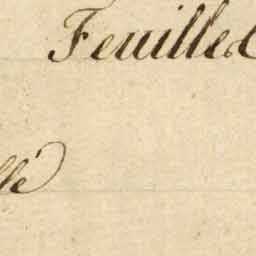 Feuilled
llé